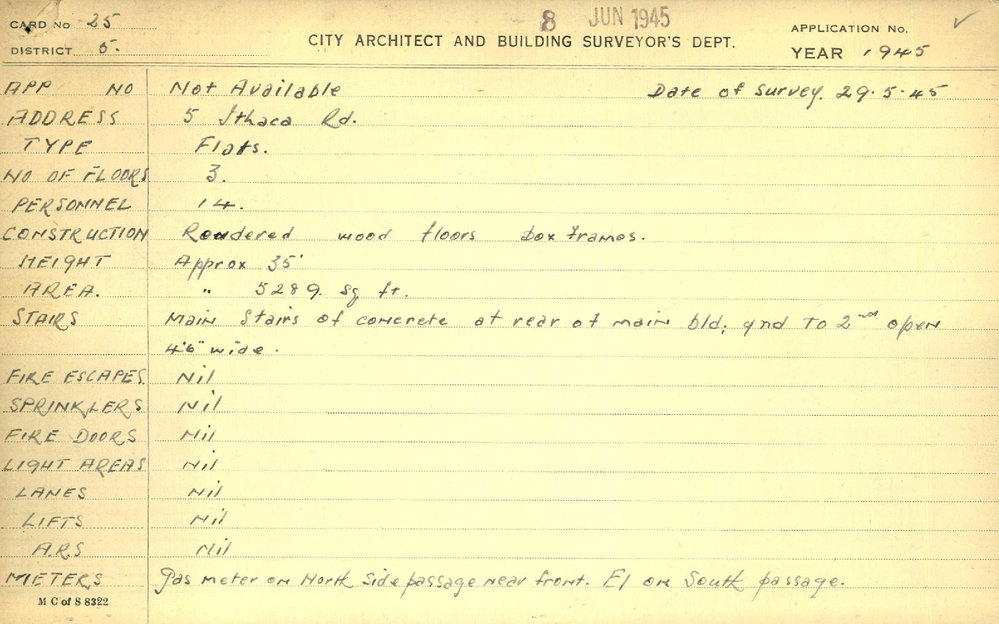 CARD No 25
8 JUN 1945
APPLICATION No.
DISTRICT 5.
CITY ARCHITECT AND BUILDING SURVEYOR'S DEPT.
YEAR 1945
APP NO Not Available Date of Survey. 29.5.45
ADDRESS 5 Ithaca Rd.
TYPE Flats.
NO OF FLOORS 3.
PERSONNEL 14.
CONSTRUCTION Rendered wood floors box frames.
HEIGHT Approx 35'
AREA. " 5289 sq ft.
STAIRS Main Stairs of concrete at rear of main bld; gnd To 2nd open
4'6" wide.
FIRE ESCAPES. Nil
SPRINKLERS Nil
FIRE DOORS Nil
LIGHT AREAS Nil
LANES Nil
LIFTS Nil
A.R.S Nil
METERS Gas meter on North Side passage near front. El on South passage.
M C of S 8322